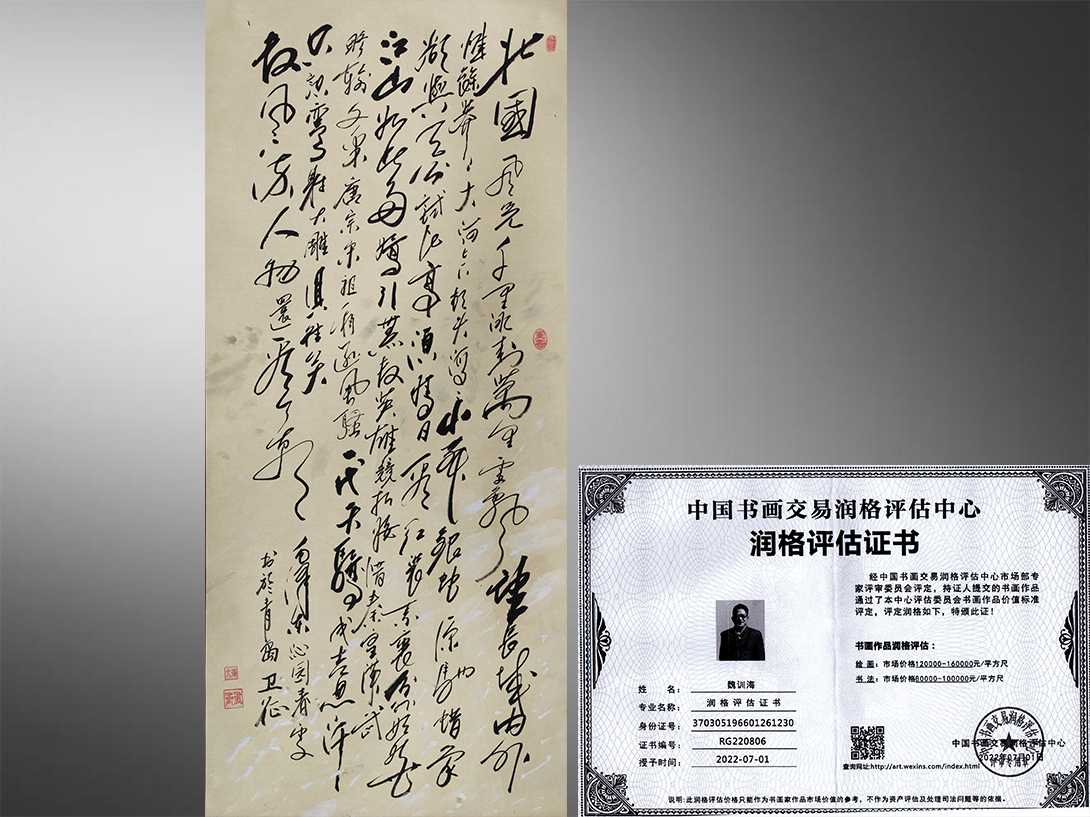 北國風光千里冰封萬里雪飄望長城内外
惟餘莽〻大河上下頓失滔〻山舞銀蛇原馳蜡象
欲與天公試比高須晴日看紅裝素裹分外妖嬈
江山如此多嬌引無數英雄競折腰惜秦皇漢武
略輸文采唐宗宋祖稍遜風騷一代天驕成吉思汗
只識彎弓射大雕俱往矣
數風流人物還看今朝
毛澤東沁園春雪
書於青島卫征
中国书画交易润格评估中心
润格评估证书
经中国书画交易润格评估中心市场部专
家评审委员会评定,持证人提交的书画作品
通过了本中心评估委员会书画作品价值标准
评定,评定润格如下,特颁此证!
书画作品润格评估:
绘画:市场价格120000-160000元/平方尺
书法:市场价格80000-100000元/平方尺
姓名:魏训海
专业名称:润格评估证书
身份证号:370305196601261230
证书编号:RG220806
授予时间:2022-07-01
中国书画交易润格评估中心
2022年07月01日
评审专用章
查询网址:http://art.wexins.com/index.html
说明:此润格评估价格只能作为书画家作品市场价值的参考,不作为资产评估及处理司法问题等的依据。